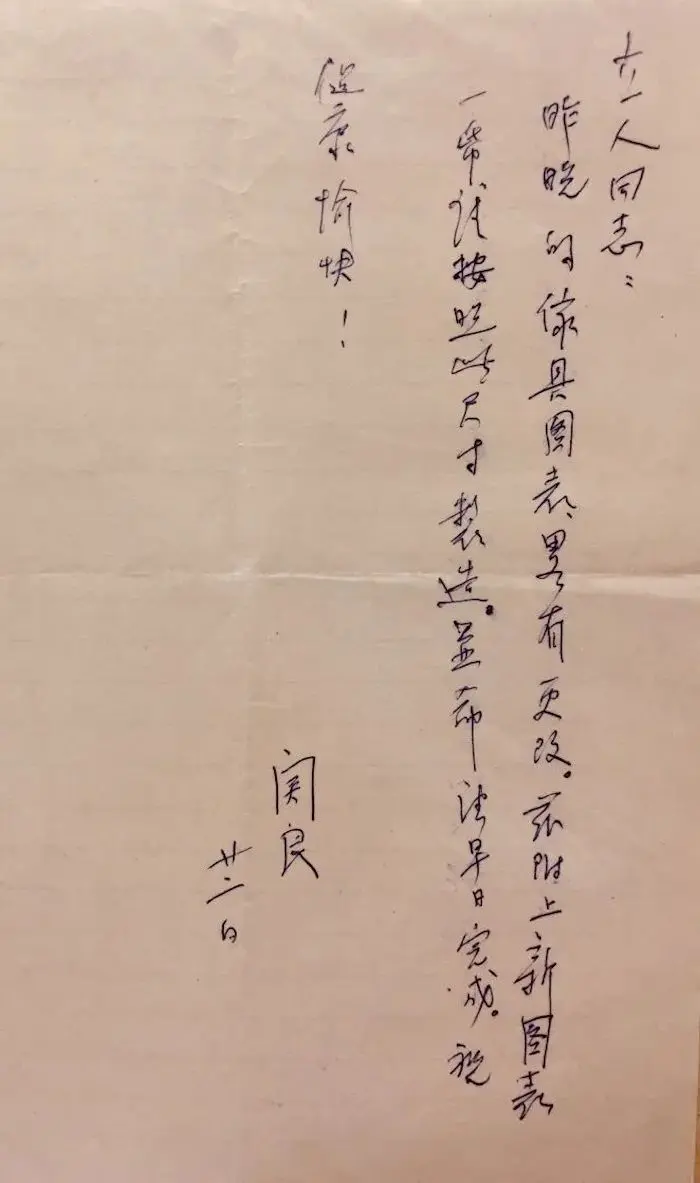 立人同志：
昨晚的傢具图表，畧有更改。兹附上新图表
一帋请按照此尺寸製造。並希请早日完成。祝
健康愉快！
関良
廿二日